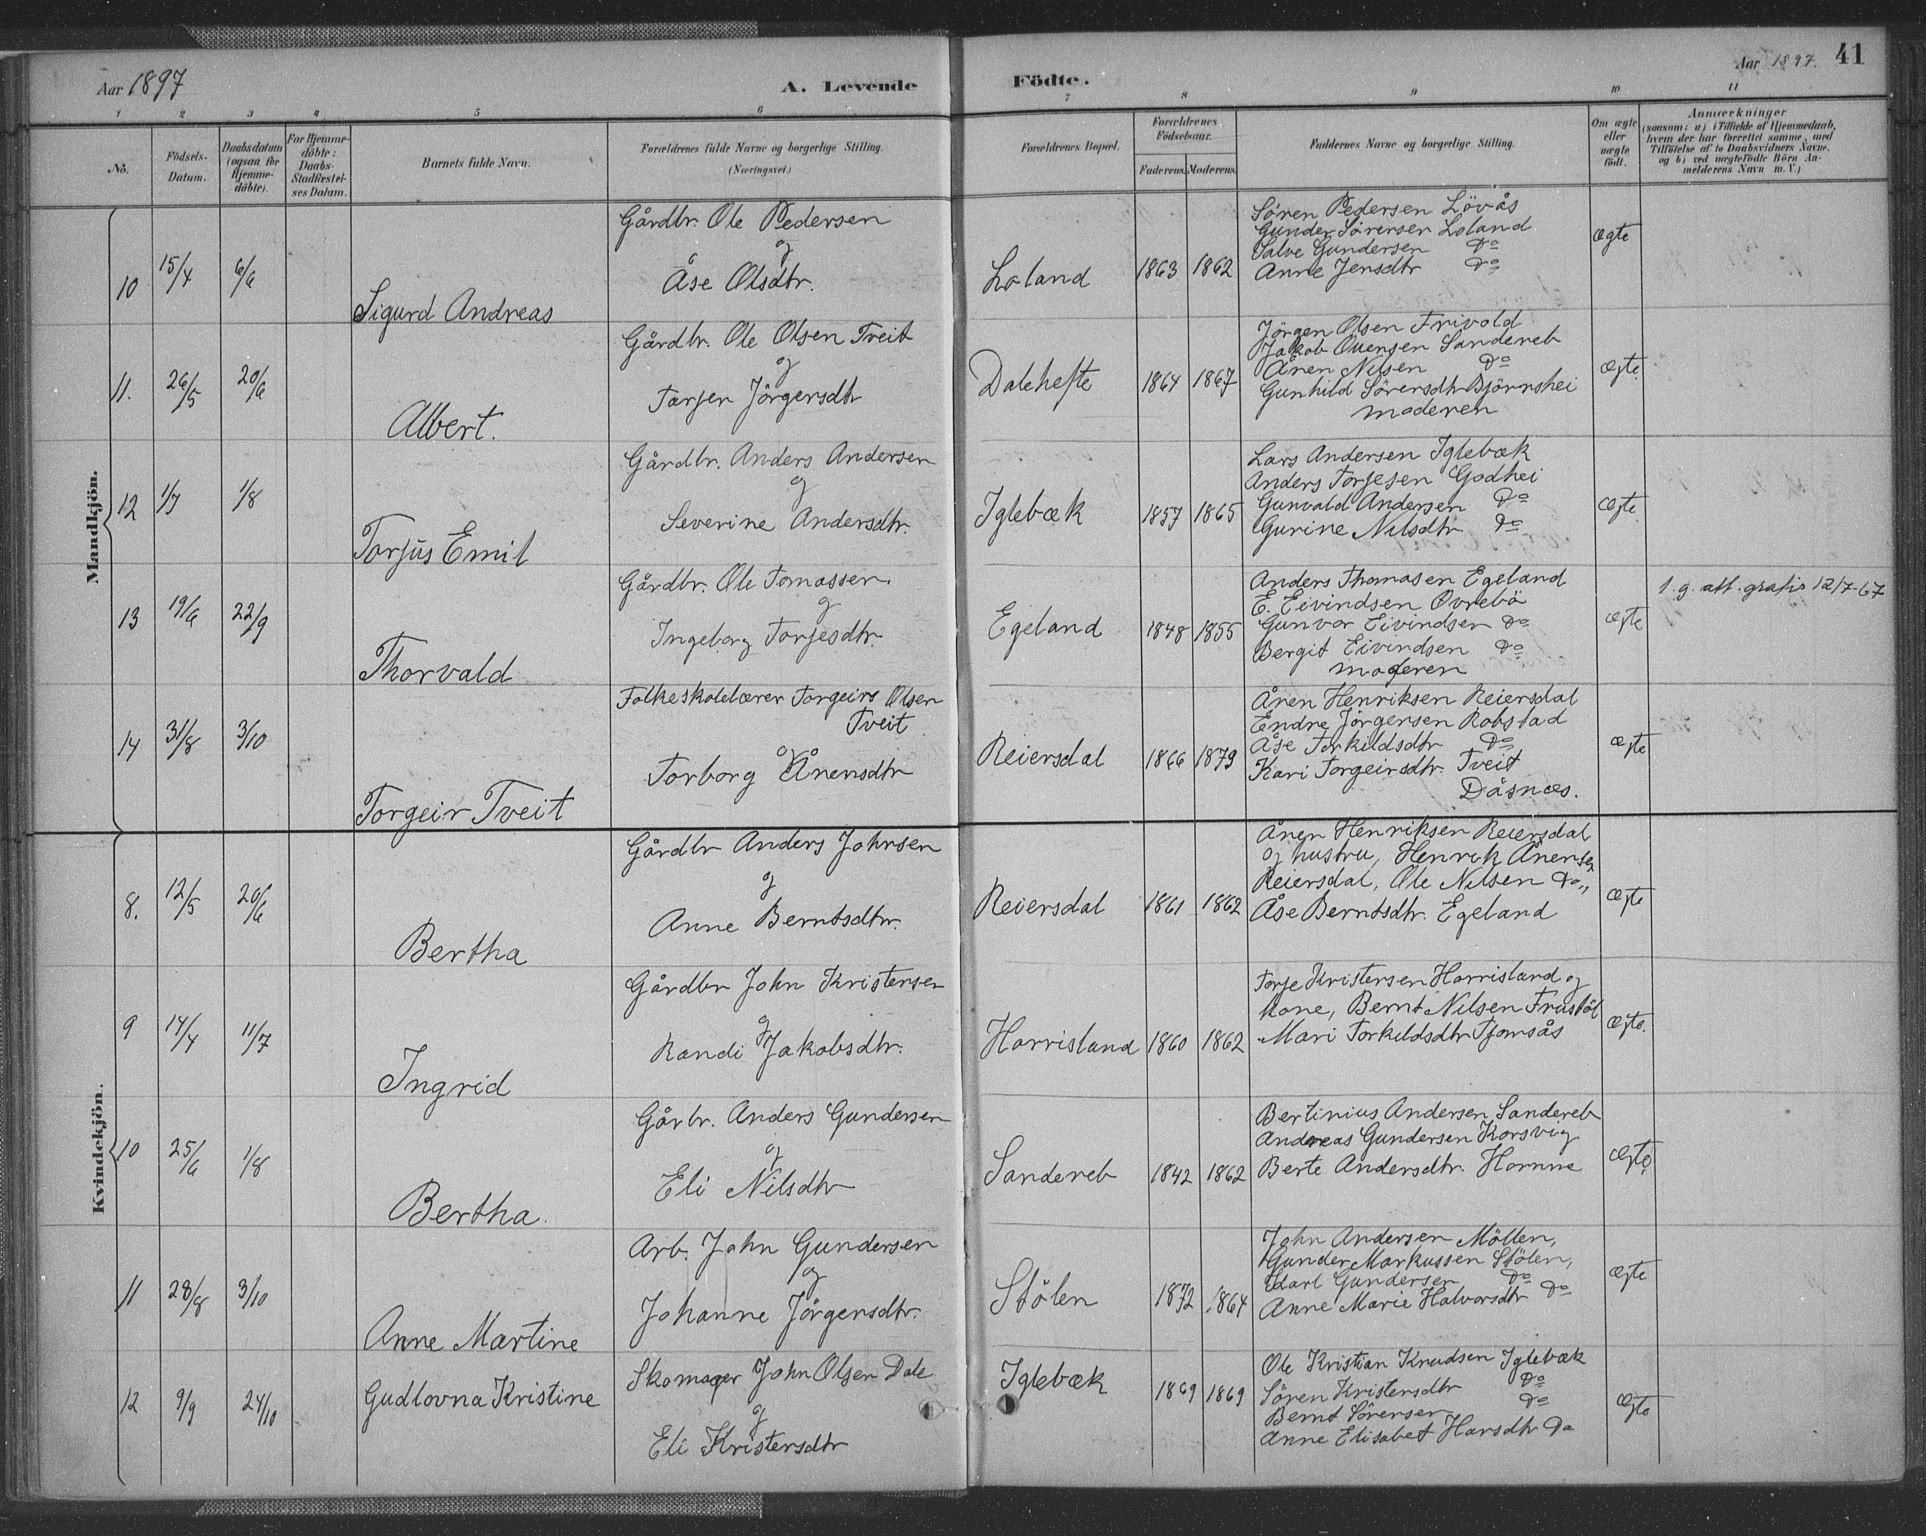 Aar 1897 A. Levende Födte. Aar 1897. 41
1 2 3 4 5 6 7 8 9 10 11
No. Födsels-Datum. Daabsdatum (ogsaa for Hjemmedöbte). For Hjemmedöbte: Daabs-Stadfæstelses Datum. Barnets fulde Navn. Forældrenes fulde Navne og borgerlige Stilling. (Næringsvei.) Forældrenes Bopæl. Forældrenes Födselsaar. Faderens. Moderens. Faddernes Navne og borgerlige Stilling. Om ægte eller uægte födt. Anmærkninger (saasom: a) i Tilfælde af Hjemmedaab, hvem der har forrettet samme, med Tilföielse af to Daabsvidners Navne, og b) ved uægtefödte Börn Anmelderens Navn m. V.)
Mandkjön.
10 15/4 6/6 Sigurd Andreas
Gårdbr. Ole Pedersen
og
Åse Olsdtr.
Loland 1863 1862
Sören Pedersen Lövås
Gunder Sörensen Loland
Salve Gundersen Do
Anne Jensdtr Do
ægte
11. 26/5 20/6 Albert.
Gårdbr. Ole Olsen Tveit
og
Tarjer Jörgensdtr
Dalehefte 1864 1867
Jörgen Olsen Frivold
Jakob Ouensen Sandereb
Ånen Nilsen Do
Gunhild Sörensdtr Björnshei
moderen
ægte.
12 1/7 1/8 Torjus Emil
Gårdbr. Anders Andersen
og
Severine Andersdtr.
Iglebæk 1857 1865
Lars Andersen Iglebæk
Anders Torjesen Godhei
Gunvald Andersen Do
Gurine Nilsdtr Do
ægte
13 19/6 22/9 Thorvald
Gårdbr. Ole Tomassen.
og
Ingeborg Torjesdtr.
Egeland 1848 1855
Anders Thomasen Egeland
E. Eivindsen Övrebö
Gunvor Eivindsen Do
Bergit Eivindsen Do
moderen
ægte
1. g. att. gratis 12/7-67
14 31/8 3/10 Torgeir Tveit
Folkeskolelærer Torgeirs Olsen
Tveit
og
Torborg Ånensdtr
Reiersdal 1866 1879
Ånen Henriksen Reiersdal
Endre Jörgensen Robstad
Åse Torkildsdtr Do
Kari Torgeirsdtr. Tveit
Dåsnæs.
ægte
Kvindekjön.
8. 12/5 20/6 Bertha
Gårdbr Anders Johnsen
og
Anne Berntsdtr.
Reiersdal 1861 1862
Ånen Henriksen Reiersdal
og hustru, Henrik Ånensen
Reiersdal, Ole Nilsen Do,,
Åse Berntsdtr. Egeland
ægte
9 14/4 11/7 Ingrid
Gårdbr John Kristensen
og
Randi Jakobsdtr.
Harrisland 1860 1862
Torje Kristensen Harrisland og
kone, Bernt Nilsen Frustöl
Mari Torkildsdtr Tjomsås
ægte.
10 25/6 1/8 Bertha.
Gårbr. Anders Gundersen
og
Eli Nilsdtr
Sandereb 1842 1862
Bertinius Andersen Sandereb
Andreas Gundersen Korsvig
Berte Andersdtr. Hornne
ægte
11 28/8 3/10 Anne Martine
Arb. John Gundersen
og
Johanne Jörgensdtr.
Stölen 1872 1864
John Andersen Möllen,
Gunder Markussen Stölen,
Edart Gundersen Do
Anne Marie Halvorsdtr Do
ægte
12 9/9 24/10 Gudlovna Kristine
Skomager John Olsen Dale
og
Eli Kristensdtr
Iglebæk 1869 1869
Ole Kristian Knudsen Iglebæk
Sören Kristensdtr Do
Bernt Sörensen Do
Anne Elisabet Hansdtr Do
ægte